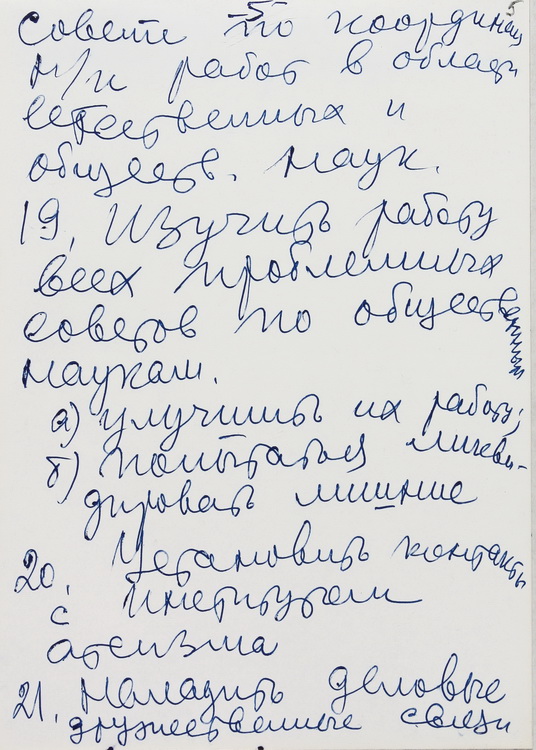 -5- 5
совете по координац
н/и работ в област
естественных и
обществ. наук.
19. Изучить работу
всех проблемных
советов по общественным
наукам.
а) улучшить их работу;
б) попытаться ликви-
дировать лишние
20. Установить контакты
с институтом
атеизма
21. Наладить деловые
дружественные связи